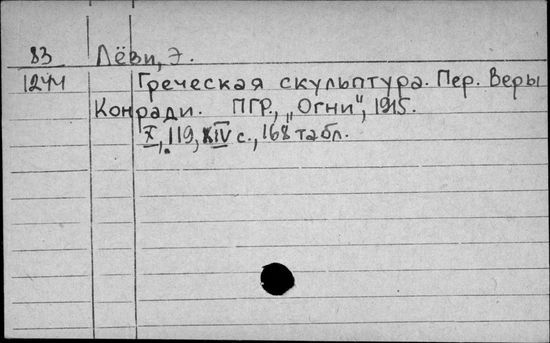 83 Лёви, Э.
1244 Греческая скульптура. Пер. Веры
Конради. ПГР., „Огни", 1915.
X, 119, XIV с., 168 табл.